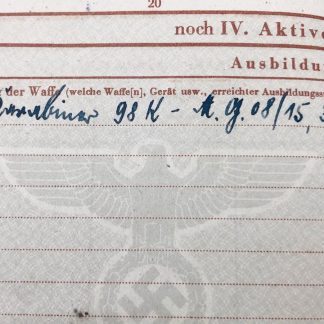 20
noch IV. Aktive
Ausbildu
g der Waffe (welche Waffe[n], Gerät usw., erreichter Ausbildungss
Karabiner 98 K - M. G. 08/15,